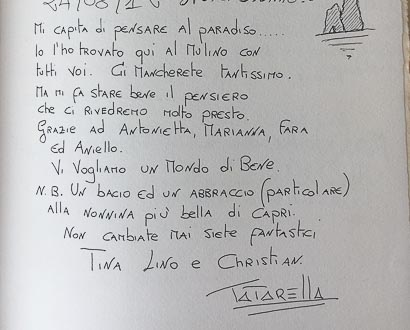 24/08/1
Mi capita di pensare al paradiso.....
Io l'ho trovato qui al Mulino con
tutti voi. Ci mancherete tantissimo.
Ma mi fa stare bene il pensiero
che ci rivedremo molto presto.
Grazie ad Antonietta, Marianna, Fara
ed Aniello.
Vi vogliamo un mondo di bene.
N.B. Un bacio ed un abbraccio (particolare)
alla nonnina più bella di Capri.
Non cambiate mai siete fantastici
Tina Lino e Christian.
Tatarella